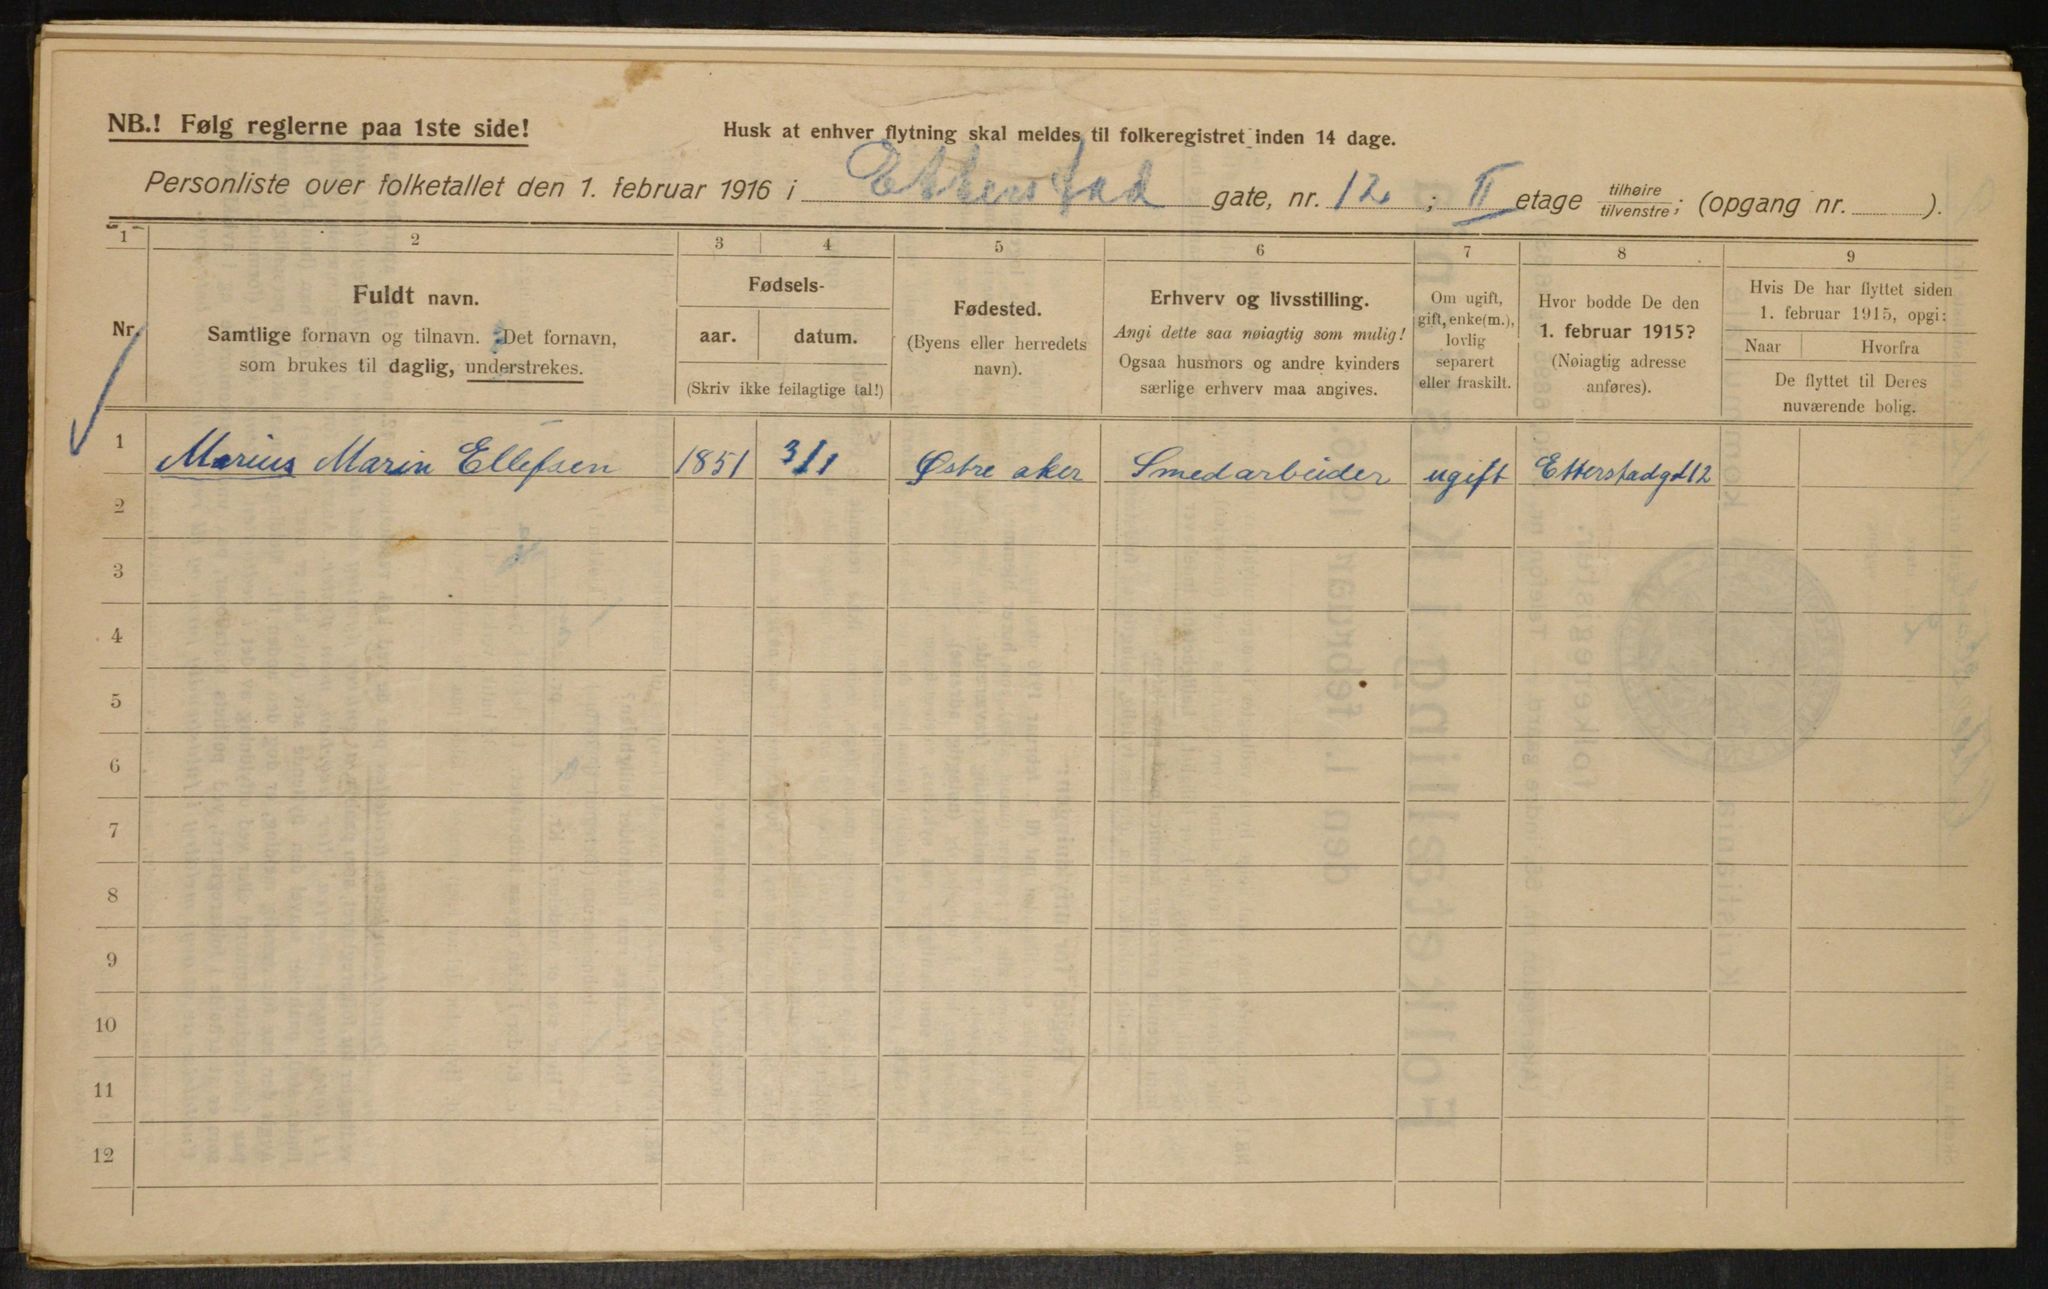 NB.! Følg reglerne paa 1ste side!
Husk at enhver flytning skal meldes til folkeregistret inden 14 dage.
Personliste over folketallet den 1. februar 1916 i Etterstad gate, nr. 12 ; II etage tilhøire/tilvenstre; (opgang nr. ).
1 2 3 4 5 6 7 8 9
Nr.
Fuldt navn.
Samtlige fornavn og tilnavn. Det fornavn,
som brukes til daglig, understrekes.
Fødsels-
aar. datum.
(Skriv ikke feilagtige tal!)
Fødested.
(Byens eller herredets
navn).
Erhverv og livsstilling.
Angi dette saa nøiagtig som mulig!
Ogsaa husmors og andre kvinders
særlige erhverv maa angives.
Om ugift,
gift, enke(m.),
lovlig
separert
eller fraskilt.
Hvor bodde De den
1. februar 1915?
(Nøiagtig adresse
anføres).
Hvis De har flyttet siden
1. februar 1915, opgi:
Naar Hvorfra
De flyttet til Deres
nuværende bolig.
1 Marius Marin Ellefsen 1851 3/1 Østre aker Smedarbeider ugift Etterstadgt 12
2
3
4
5
6
7
8
9
10
11
12